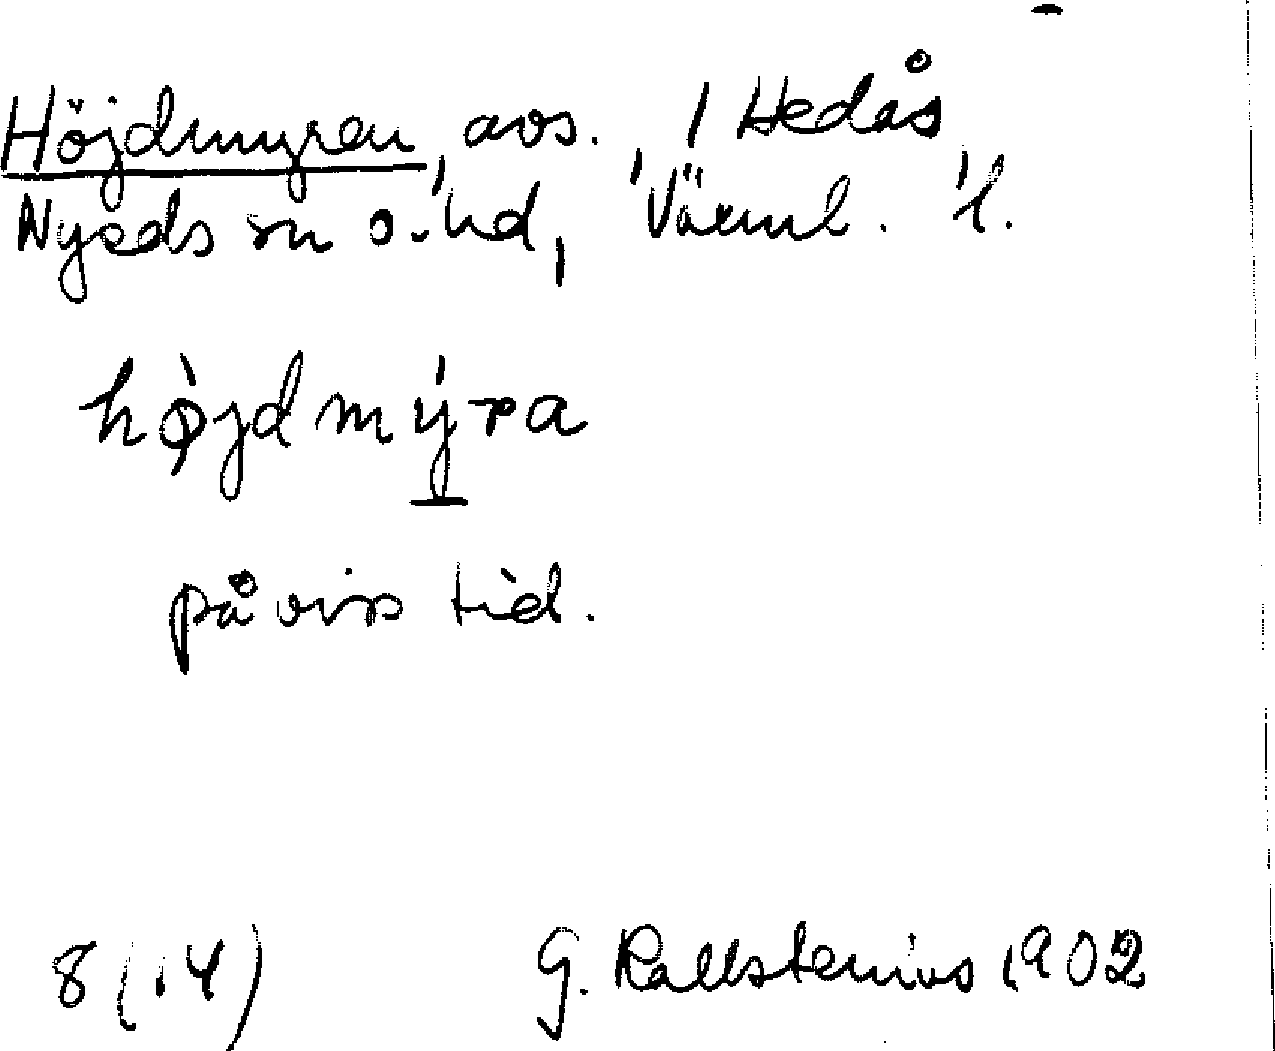 Höjdmyren, avs., / Hedås,
Nyeds sn o. hd, Värml. l.
hø̀jdmýra
på viss tid.
8 (14) G. Kallstenius 1902